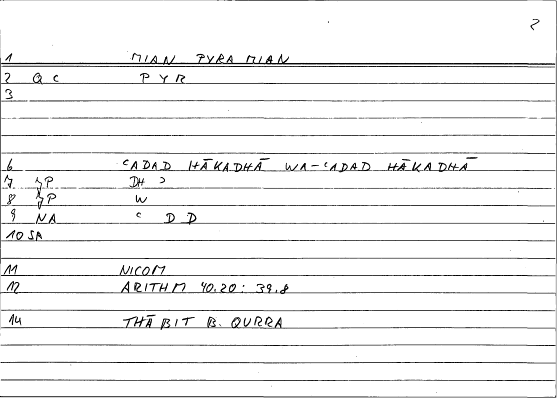 2
1 MIAN PYRA MIAN
2 Q C P Y R
3
6 ʿADAD HĀKADHĀ WA-ʿADAD HĀKADHĀ
7 ȝP DH ʾ
8 ȝP W
9 NA ʿ D D
10 SA
11 NICOM
12 ARITHM 40.20 : 39.8
14 THĀBIT B. QURRA